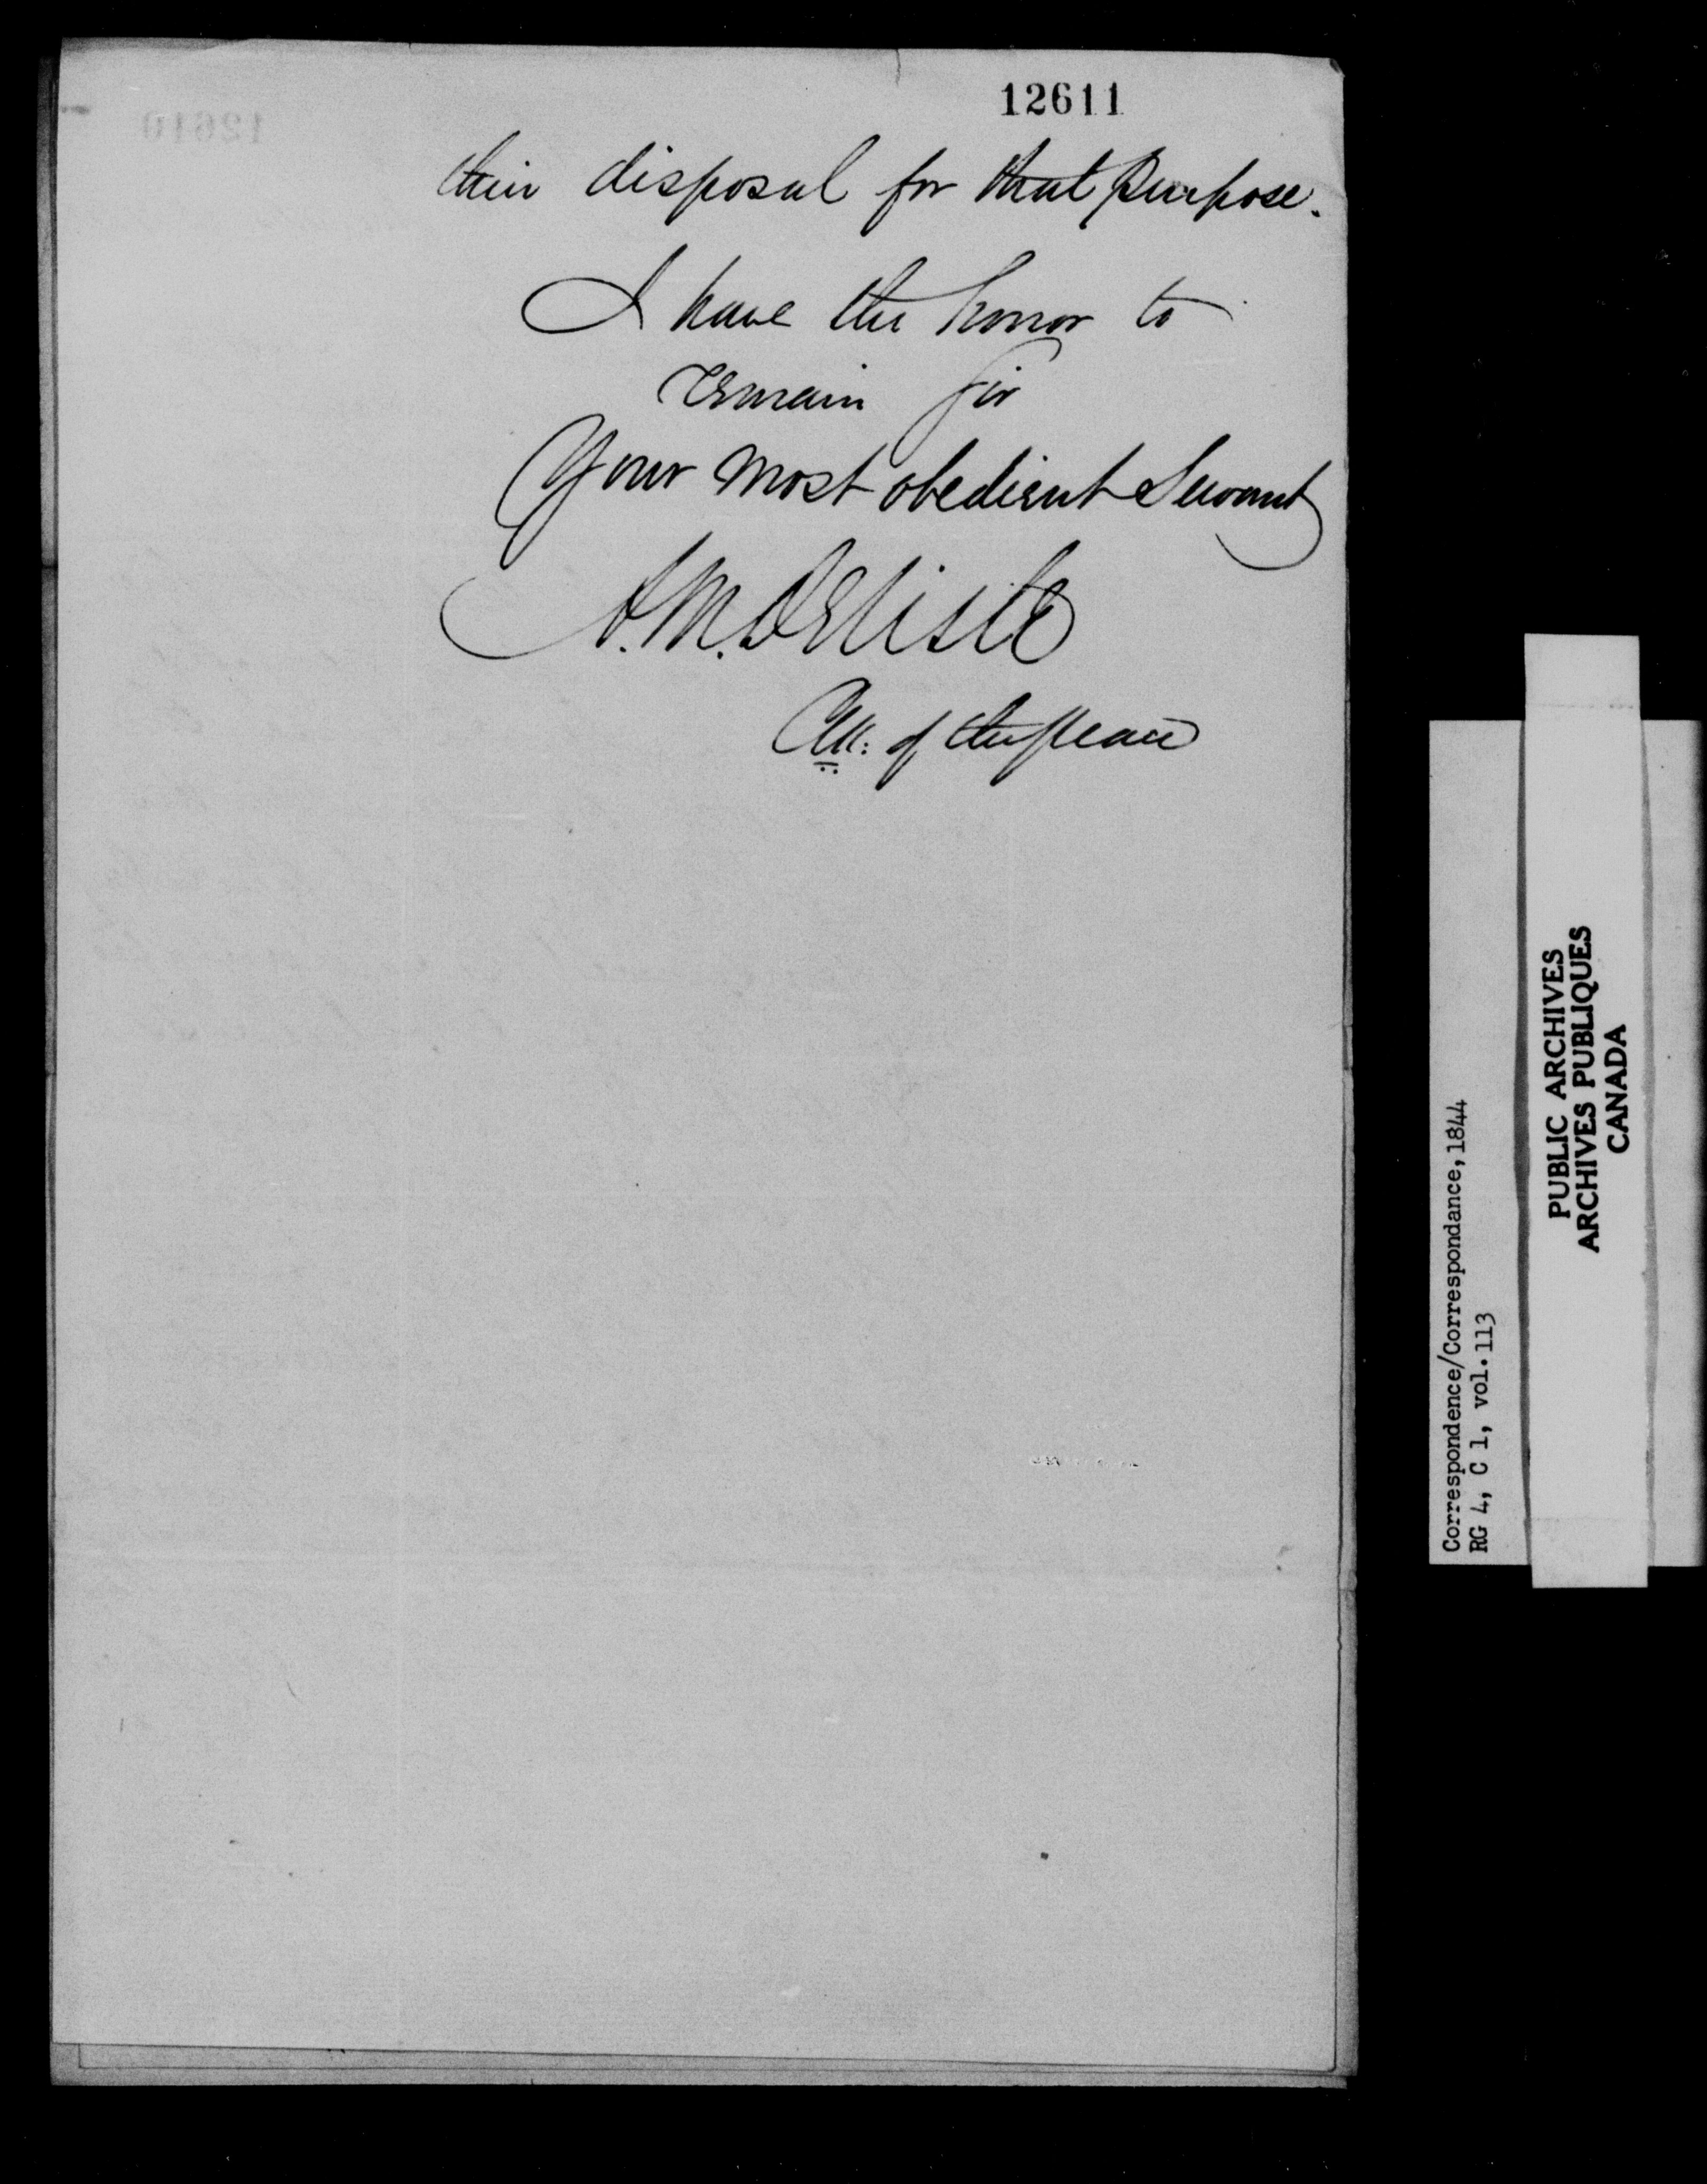 12611
their disposal for that purpose.
I have the honor to
remain Sir
Your most obedient Servant
A. M. Delisle
Clk: of the Peace
Correspondence/Correspondance, 1844
RG 4, C 1, vol. 113
PUBLIC ARCHIVES
ARCHIVES PUBLIQUES
CANADA